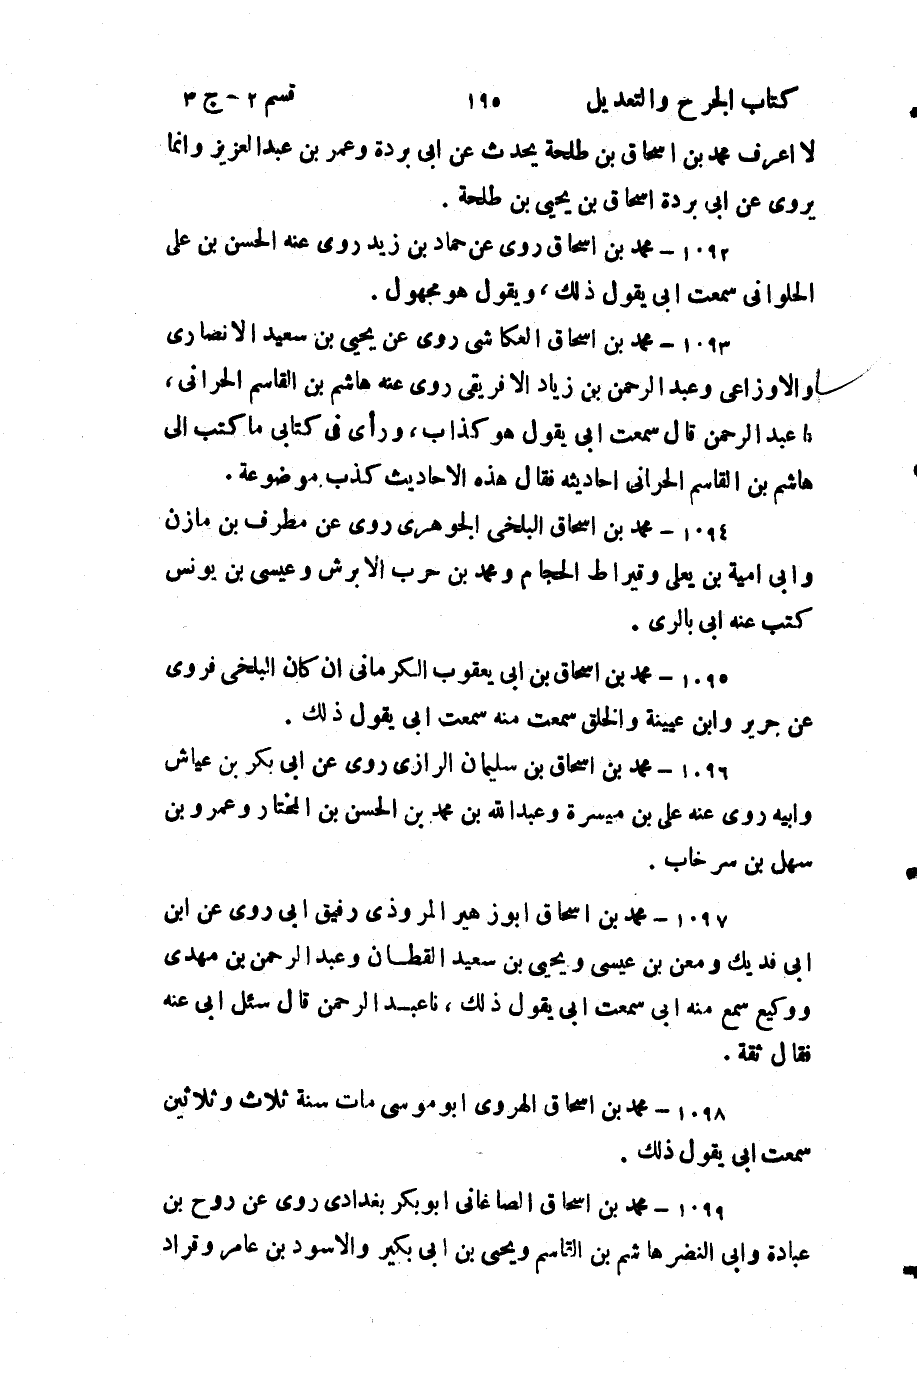 كتاب الجرح والتعديل ١٩٥ قسم ٢ - ج ٣
لا اعرف محمد بن اسحاق بن طلحة يحدث عن ابى بردة وعمر بن عبدالعزيز وانما
يروى عن ابى بردة اسحاق بن يحيى بن طلحة .
١٠٩٢ - محمد بن اسحاق روى عن حماد بن زيد روى عنه الحسن بن على
الحلوانى سمعت ابى يقول ذلك ، ويقول هو مجهول .
١٠٩٣ - محمد بن اسحاق العكاشى روى عن يحيى بن سعيد الانصارى
والاوزاعى وعبد الرحمن بن زياد الافريقى روى عنه هاشم بن القاسم الحرانى ،
نا عبد الرحمن قال سمعت ابى يقول هو كذاب ، ورأى فى كتابى ما كتب الى
هاشم بن القاسم الحرانى احاديثه فقال هذه الاحاديث كذب موضوعة .
١٠٩٤ - محمد بن اسحاق البلخى الجوهرى روى عن مطرف بن مازن
وابى امية بن يعلى وقيراط الحجام ومحمد بن حرب الابرش وعيسى بن يونس
كتب عنه ابى بالرى .
١٠٩٥ - محمد بن اسحاق بن ابى يعقوب الكرمانى ان كان البلخى فروى
عن جرير وابن عيينة والخلق سمعت منه سمعت ابى يقول ذلك .
١٠٩٦ - محمد بن اسحاق بن سليمان الرازى روى عن ابى بكر بن عياش
وابيه روى عنه على بن ميسرة وعبدالله بن محمد بن الحسن بن المختار وعمرو بن
سهل بن سرخاب .
١٠٩٧ - محمد بن اسحاق ابو زهير المروذى رفيق ابى روى عن ابن
ابى فديك ومعن بن عيسى ويحيى بن سعيد القطان وعبد الرحمن بن مهدى
ووكيع سمع منه ابى سمعت ابى يقول ذلك ، نا عبد الرحمن قال سئل ابى عنه
فقال ثقة .
١٠٩٨ - محمد بن اسحاق الهروى ابو موسى مات سنة ثلاث وثلاثين
سمعت ابى يقول ذلك .
١٠٩٩ - محمد بن اسحاق الصاغانى ابو بكر بغدادى روى عن روح بن
عبادة وابى النضر هاشم بن القاسم ويحيى بن ابى بكير والاسود بن عامر وقراد